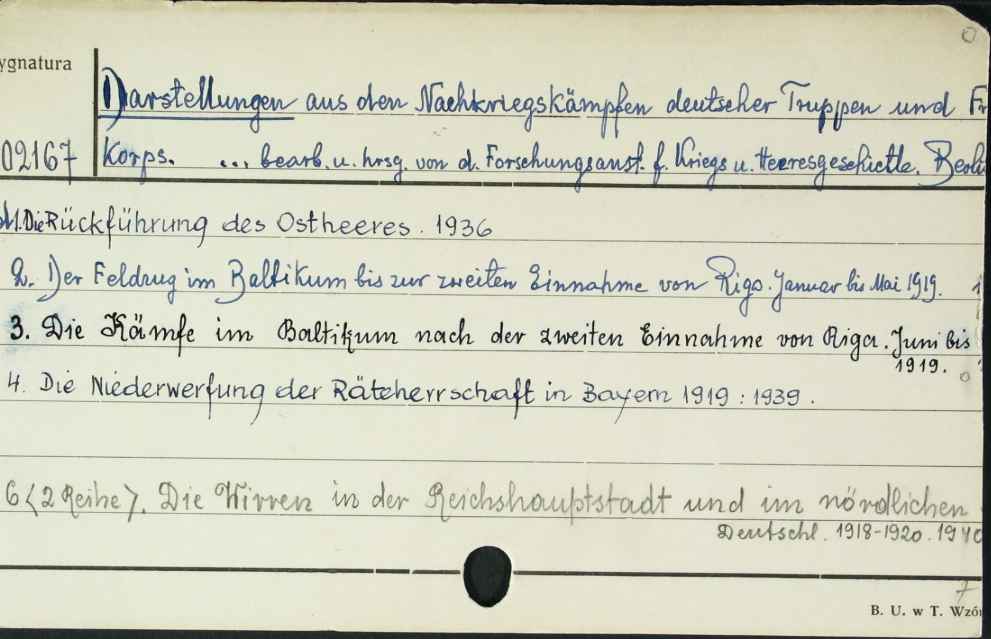 0
ygnatura
Darstellungen aus den Nachkriegskämpfen deutscher Truppen und Fr
02167 Korps. ... bearb. u. hrsg. von d. Forschungsanst. f. Kriegs u. Heeresgeschichte. Berli
1. Die Rückführung des Ostheeres. 1936
2. Der Feldzug im Baltikum bis zur zweiten Einnahme von Riga. Januar bis Mai 1919. 1
3. Die Kämfe im Baltikum nach der zweiten Einnahme von Riga. Juni bis
1919.
4. Die Niederwerfung der Räteherrschaft in Bayern 1919 : 1939.
6 <2 Reihe>. Die Wirren in der Reichshauptstadt und im nördlichen
Deutschl. 1918-1920. 1940
7
B. U. w T. Wzór